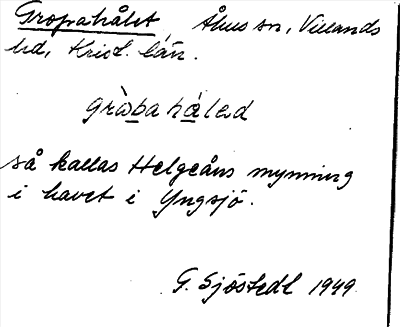 Gropahålet Åhus sn, Villands
hd, Krist. län.
gràbahàled
så kallas Helgeåns mynning
i havet i Yngsjö.
G. Sjöstedt 1949